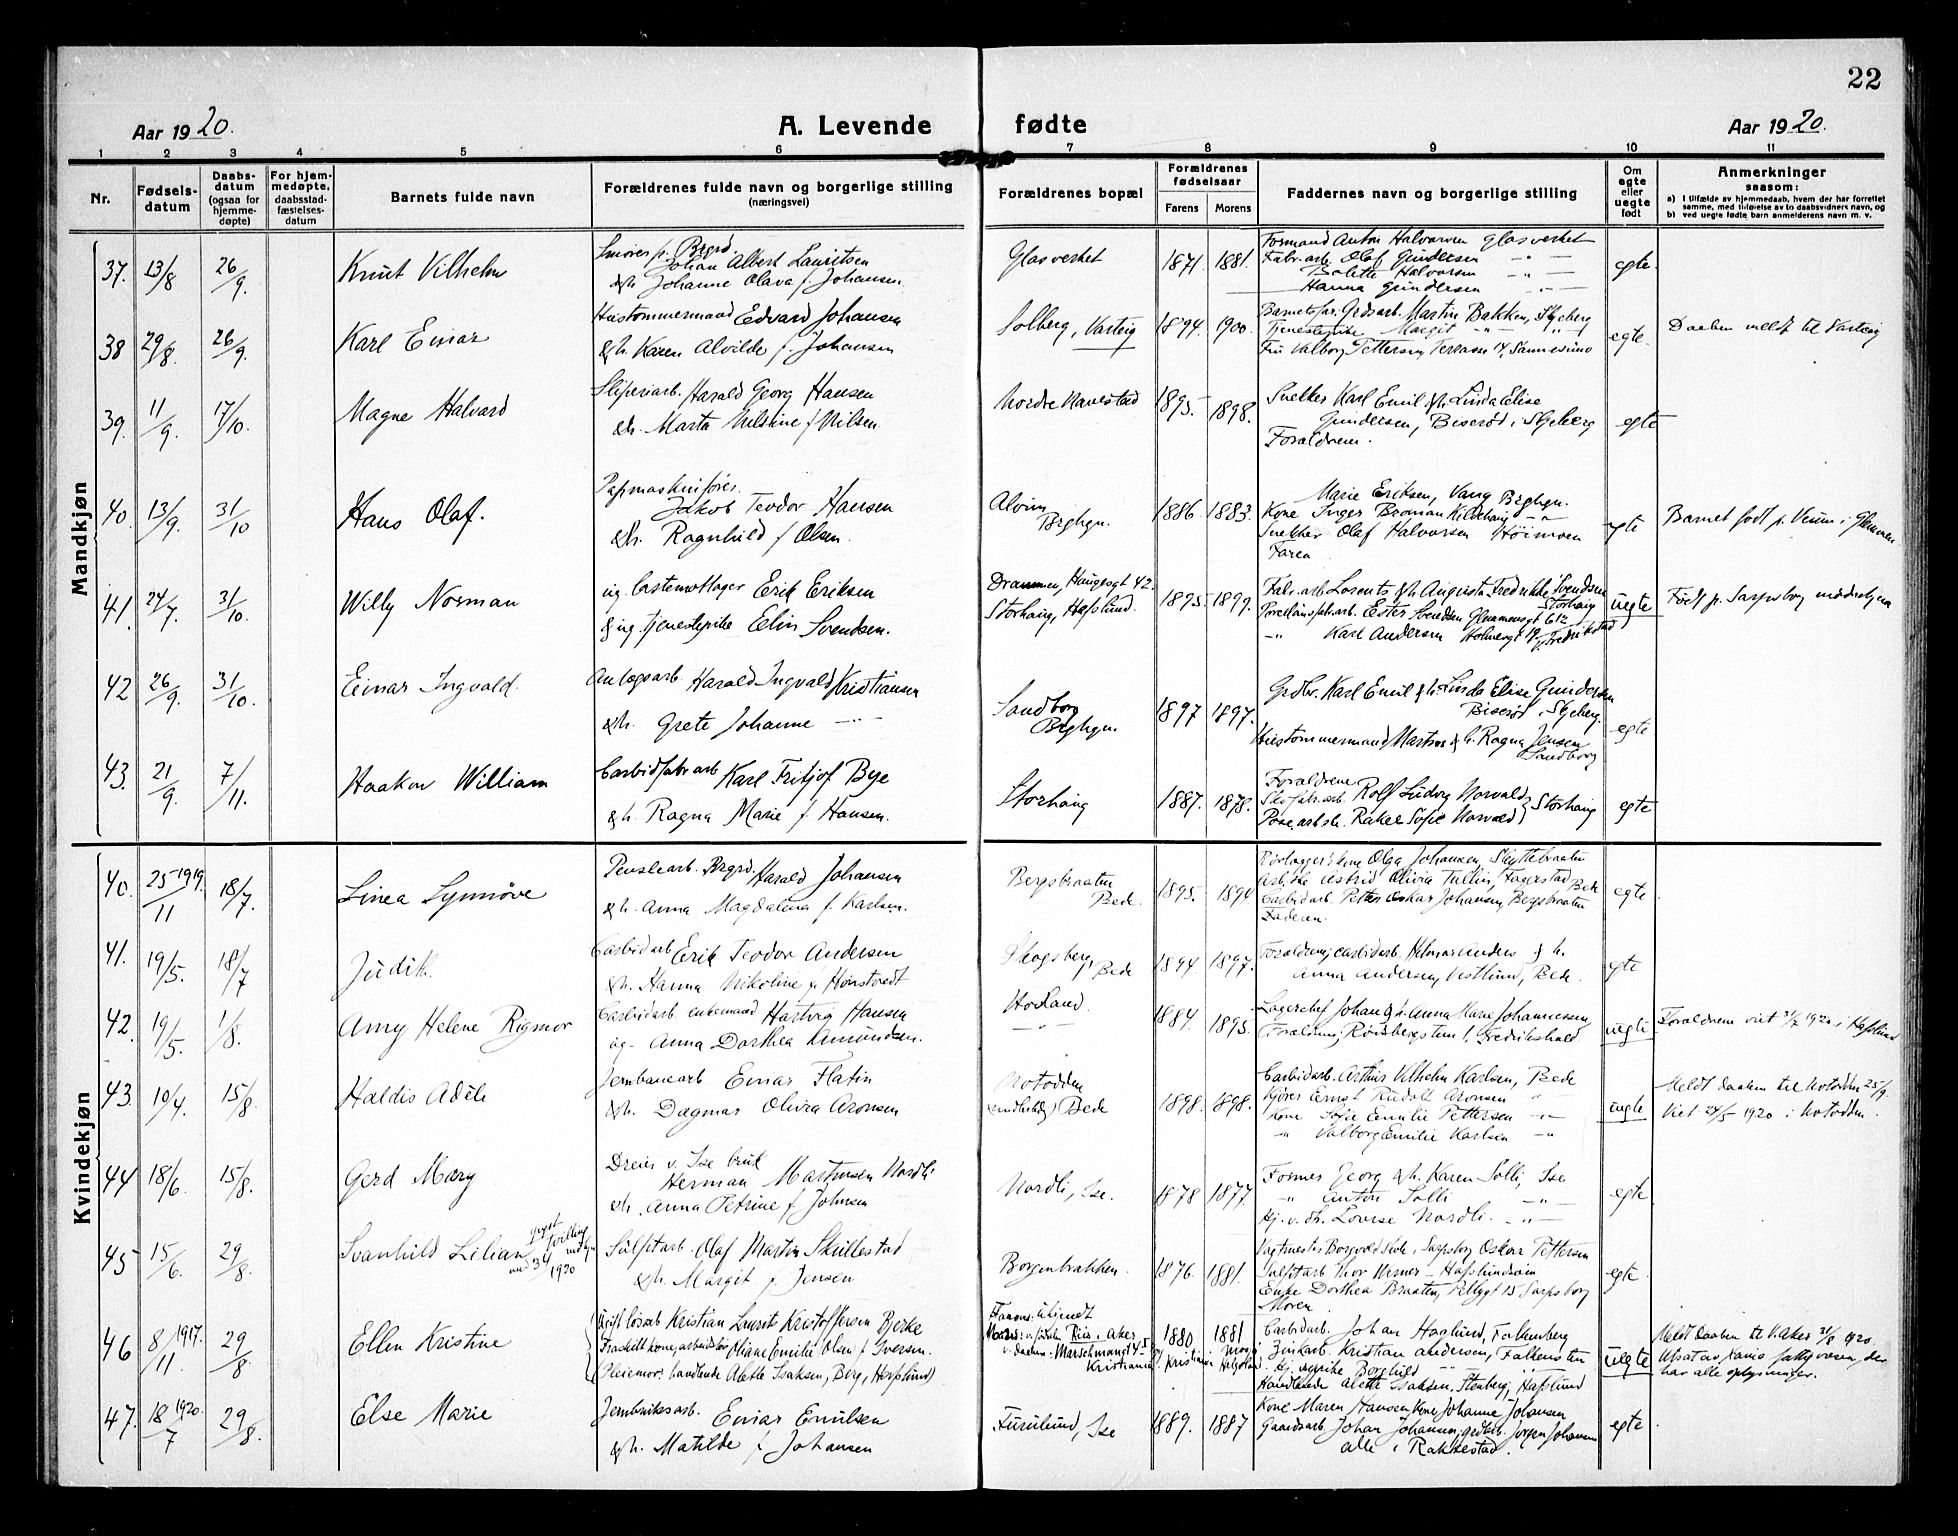 22
Aar 1920.
A. Levende fødte
Aar 1920.
1 2 3 4 5 6 7 8 9 10 11
Nr.
Fødsels-
datum
Daabs-
datum
(ogsaa for
hjemme-
døpte)
For hjem-
medøpte,
daabsstad-
fæstelses-
datum
Barnets fulde navn
Forældrenes fulde navn og borgerlige stilling
(næringsvei)
Forældrenes bopæl
Forældrenes
fødselsaar
Farens Morens
Faddernes navn og borgerlige stilling
Om
egte
eller
uegte
født
Anmerkninger
saasom:
a) I tilfælde av hjemmedaab, hvem der har forrettet
samme, med tilføielse av to daabsvidners navn, og
b) ved uegte fødte barn anmelderens navn m. v.
Mandkjøn
37. 13/8 26/9. Knut Vilhelm
Johan Albert Lauritsen
&h. Johanne Olava f. Johansen.
Glasverket 1871. 1881.
Formand Anton Halvorsen Glasverket
Fabr.arb. Olaf Gundersen —"—
Bolette Halvorsen —"—
Hanna Gundersen —"—
egte.
38 29/8. 26/9. Karl Einar
Hustømmermand Edvard Johansen
&h. Karen Alvilde f. Johansen
Solberg, Varteig 1894. 1900.
Martin Bakken, Skjeberg
Margit —"— —"—
Fru Valborg Pettersen,
egte.
Daaben meldt til Varteig
39. 11/9. 17/10. Magne Halvard
Sliperiarb. Harald Georg Hansen
&h. Marta Nilsine f. Nilsen.
Nordre Navestad 1895. 1898.
Snekker Karl Emil &h. Linda Elise
Gundersen, Biserød i Skjeberg
Forældrene.
egte
40. 13/9. 31/10 Hans Olaf.
Papmaskinfører.
Jakob Teodor Hansen
&h. Ragnhild f. Olsen.
Alvim
Brghgn. 1886. 1883.
Marie Eriksen, Vang Brghgn.
Kone Inger Broman —"—
Snekker Olaf Halvorsen
Faren
egte
Barnet født p. Veum i Glemmen
41. 24/7. 31/10. Willy Norman
ug. Erik Eriksen
& ug. tjenestepike Elin Svendsen.
Drammen, Haugesgt 42.
Storhaug, Hafslund. 1895 1899.
Fabr.arb. Lorents &h. Augusta Fredrikke Svendsen
Storhaug
Porcelænsfabr.arb. Ester Svendsen
—"— Karl Andersen
Fredrikstad
uegte
Født p. Sarpsborg mødrehjem
42 26/9. 31/10. Einar Ingvald.
Anlægsarb. Harald Ingvald Kristiansen
&h. Grete Johanne —"—
Sandborg
Brghgn. 1897 1897.
Karl Emil & h. Linda Elise Gundersen
Biserød i Skjeberg.
Hustømmermand Martin & h. Ragna Jensen
Sandborg
egte.
43. 21/9. 7/11. Haakon William
Carbidfabr.arb. Karl Fritjof Bye
&h. Ragna Marie f. Hansen.
Storhaug 1887. 1878.
Forældrene
Skofabr.arb. Rolf Ludvig Norvald
Rakel Sofie Norvald } Storhaug
egte
Kvindekjøn
40. 25-1919./11 18/7. Linea Synnøve
Harald Johansen
&h. Anna Magdalena f. Karlsen.
Bergsbraaten
Bede. 1895. 1894
Olga Johansen, Skyttebraaten
Astrid Olivia Tullin, Bede
Carbidarb. Petter Oskar Johansen, Bergsbraaten
Faderen.
egte
41. 19/5. 18/7 Judit.
Carbidarb. Erik Teodor Andersen
&h. Hanna Nikoline
Skogsberg,
Bede 1894 1897.
Forældrene, carbidarb. & h.
Anna Andersen, Vestlund, Bede.
egte
42. 19/5. 1/8. Amy Helene Rigmor
Carbidarb. enkemand Hartvig Hansen
ug. Anna Dorthea Amundsen.
—"— 1884. 1895.
Lagerchef Johan &h. Anna Marie Johannessen,
Forældrene, Fredrikshald
uegte
Forældrene viet 31/7 1920 i Hafslund
43. 10/4. 15/8. Haldis Adèle
Jernbanearb. Einar Flatin
&h. Dagmar Olivia Aronsen
Notodden
Bede 1898. 1898.
Carbidarb. Arthur Vilhelm Karlsen, Bede
Kjører Ernst Rudolf Aronsen "
Kone Sofie Emilie Pettersen —"—
" Valborg Emilie Karlsen —"—
uegte
Meldt daaben til Notodden 25/9.
Viet 24/5 1920 i Notodden.
44 18/6. 15/8. Gerd Mary
Dreier v. Ise bruk
Herman Martinsen Nordli
&h. Anna Petrine f. Johnsen
Nordli, Ise. 1878 1877.
Former Georg &h. Karen Solli, Ise
" Anton Solli —"—
Hj. v. dt. Lovise Nordli. —"—
egte.
45 15/6. 29/8. Svanhild Lilian
1920
Sulfitarb. Olaf Martin Skullestad
&h. Margit f. Jensen
Borgenbakken. 1876. 1881.
Vagtmester Borgvold Skole, Sarpsborg Oskar Pettersen
Sulfitarb. Thor Werner —
Enke Dorthea Braaten, Sarpsborg
Moren
egte.
46 8/11 1917. 29/8 Ellen Kristine
Kristian Laurits Kristoffersen Bjerke
Fraskilt kone, Oliane Emilie Olsen f. Iversen.
(Pleiemor: handlende Alette Isaksen, Berg, Hafslund)
Farens: ukjendt
Riis i Aker
Kristiania 1880 1881
Carbidarb. Johan Haglund, Falkenberg
Kristian Andersen, Falkensten
Borghild —"—
Handlende Alette Isaksen, Stenberg, Hafslund
uegte
Meldt daaben til V. Aker 31/8 1920.
har alle oplysninger.
47. 18/7 1920. 29/8. Else Marie
Einar Emilsen
&h. Matilde f. Johansen
Furulund, Ise 1889. 1887
Kone Maren Hansen, Kone Johanne Johansen
Gaardsarb. Johan Johansen, Jørgen Johansen
alle i Rakkestad.
egte